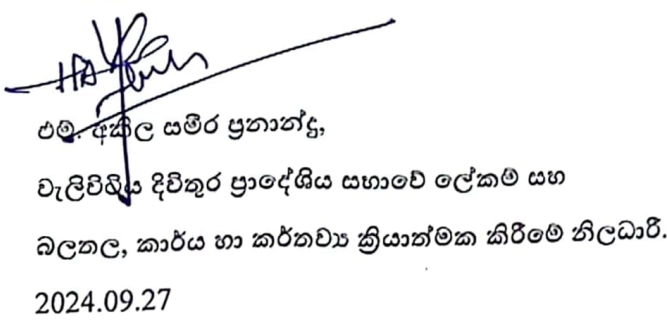 එම්. අකිල සමීර ප්‍රනාන්දු,
වැලිවිටිය දිවිතුර ප්‍රාදේශීය සභාවේ ලේකම් සහ
බලතල, කාර්ය හා කර්තව්‍ය ක්‍රියාත්මක කිරීමේ නිලධාරී.
2024.09.27